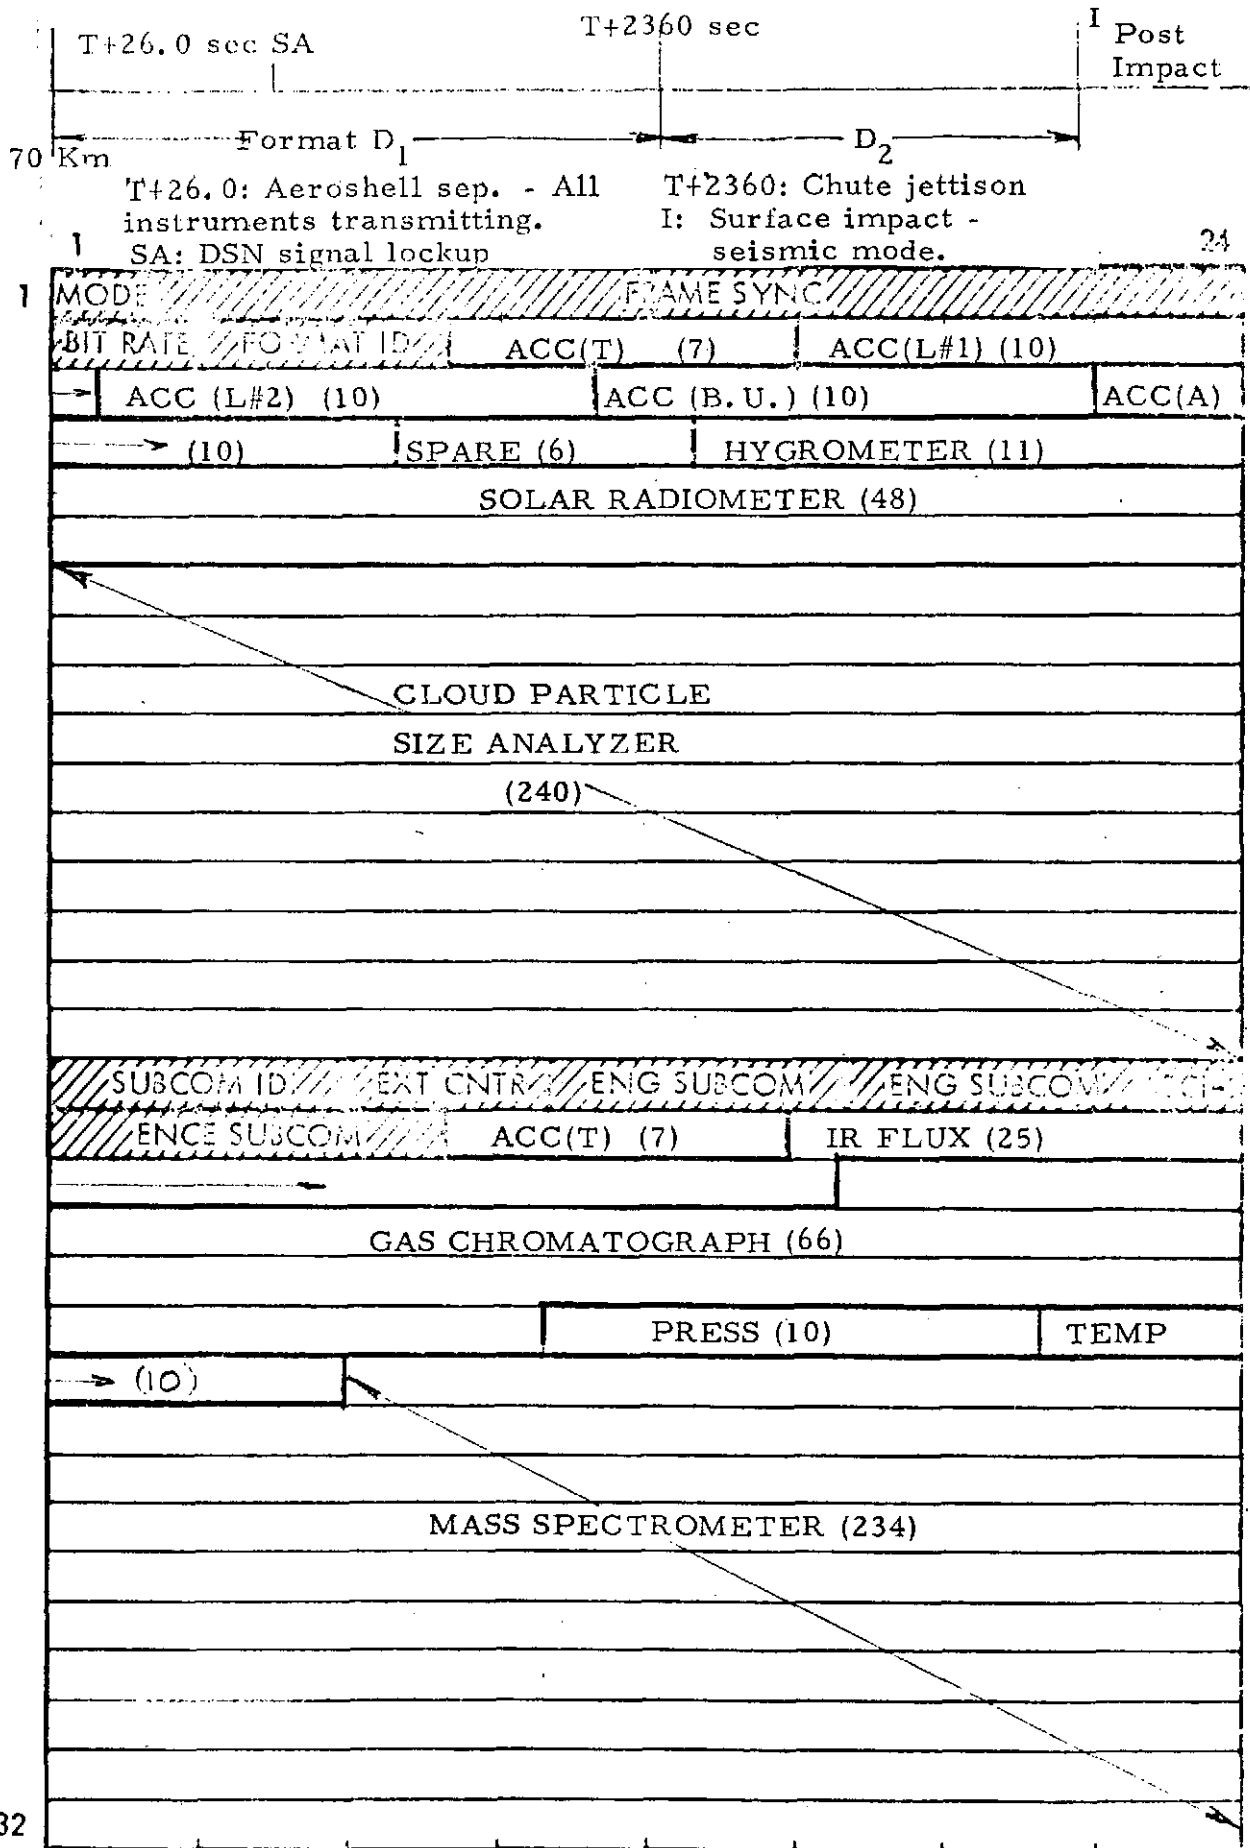 T+26.0 sec SA
T+2360 sec
I Post
Impact
Format D1
D2
70 Km
T+26.0: Aeroshell sep. - All
instruments transmitting.
SA: DSN signal lockup
T+2360: Chute jettison
I: Surface impact -
seismic mode.
1
24
1
MODE FRAME SYNC
BIT RATE FORMAT ID ACC(T) (7) ACC(L#1) (10)
ACC (L#2) (10) ACC (B.U.) (10) ACC(A)
(10) SPARE (6) HYGROMETER (11)
SOLAR RADIOMETER (48)
CLOUD PARTICLE
SIZE ANALYZER
(240)
SUBCOM ID EXT CNTR ENG SUBCOM ENG SUBCOM SCI-
ENCE SUBCOM ACC(T) (7) IR FLUX (25)
GAS CHROMATOGRAPH (66)
PRESS (10) TEMP
(10)
MASS SPECTROMETER (234)
32